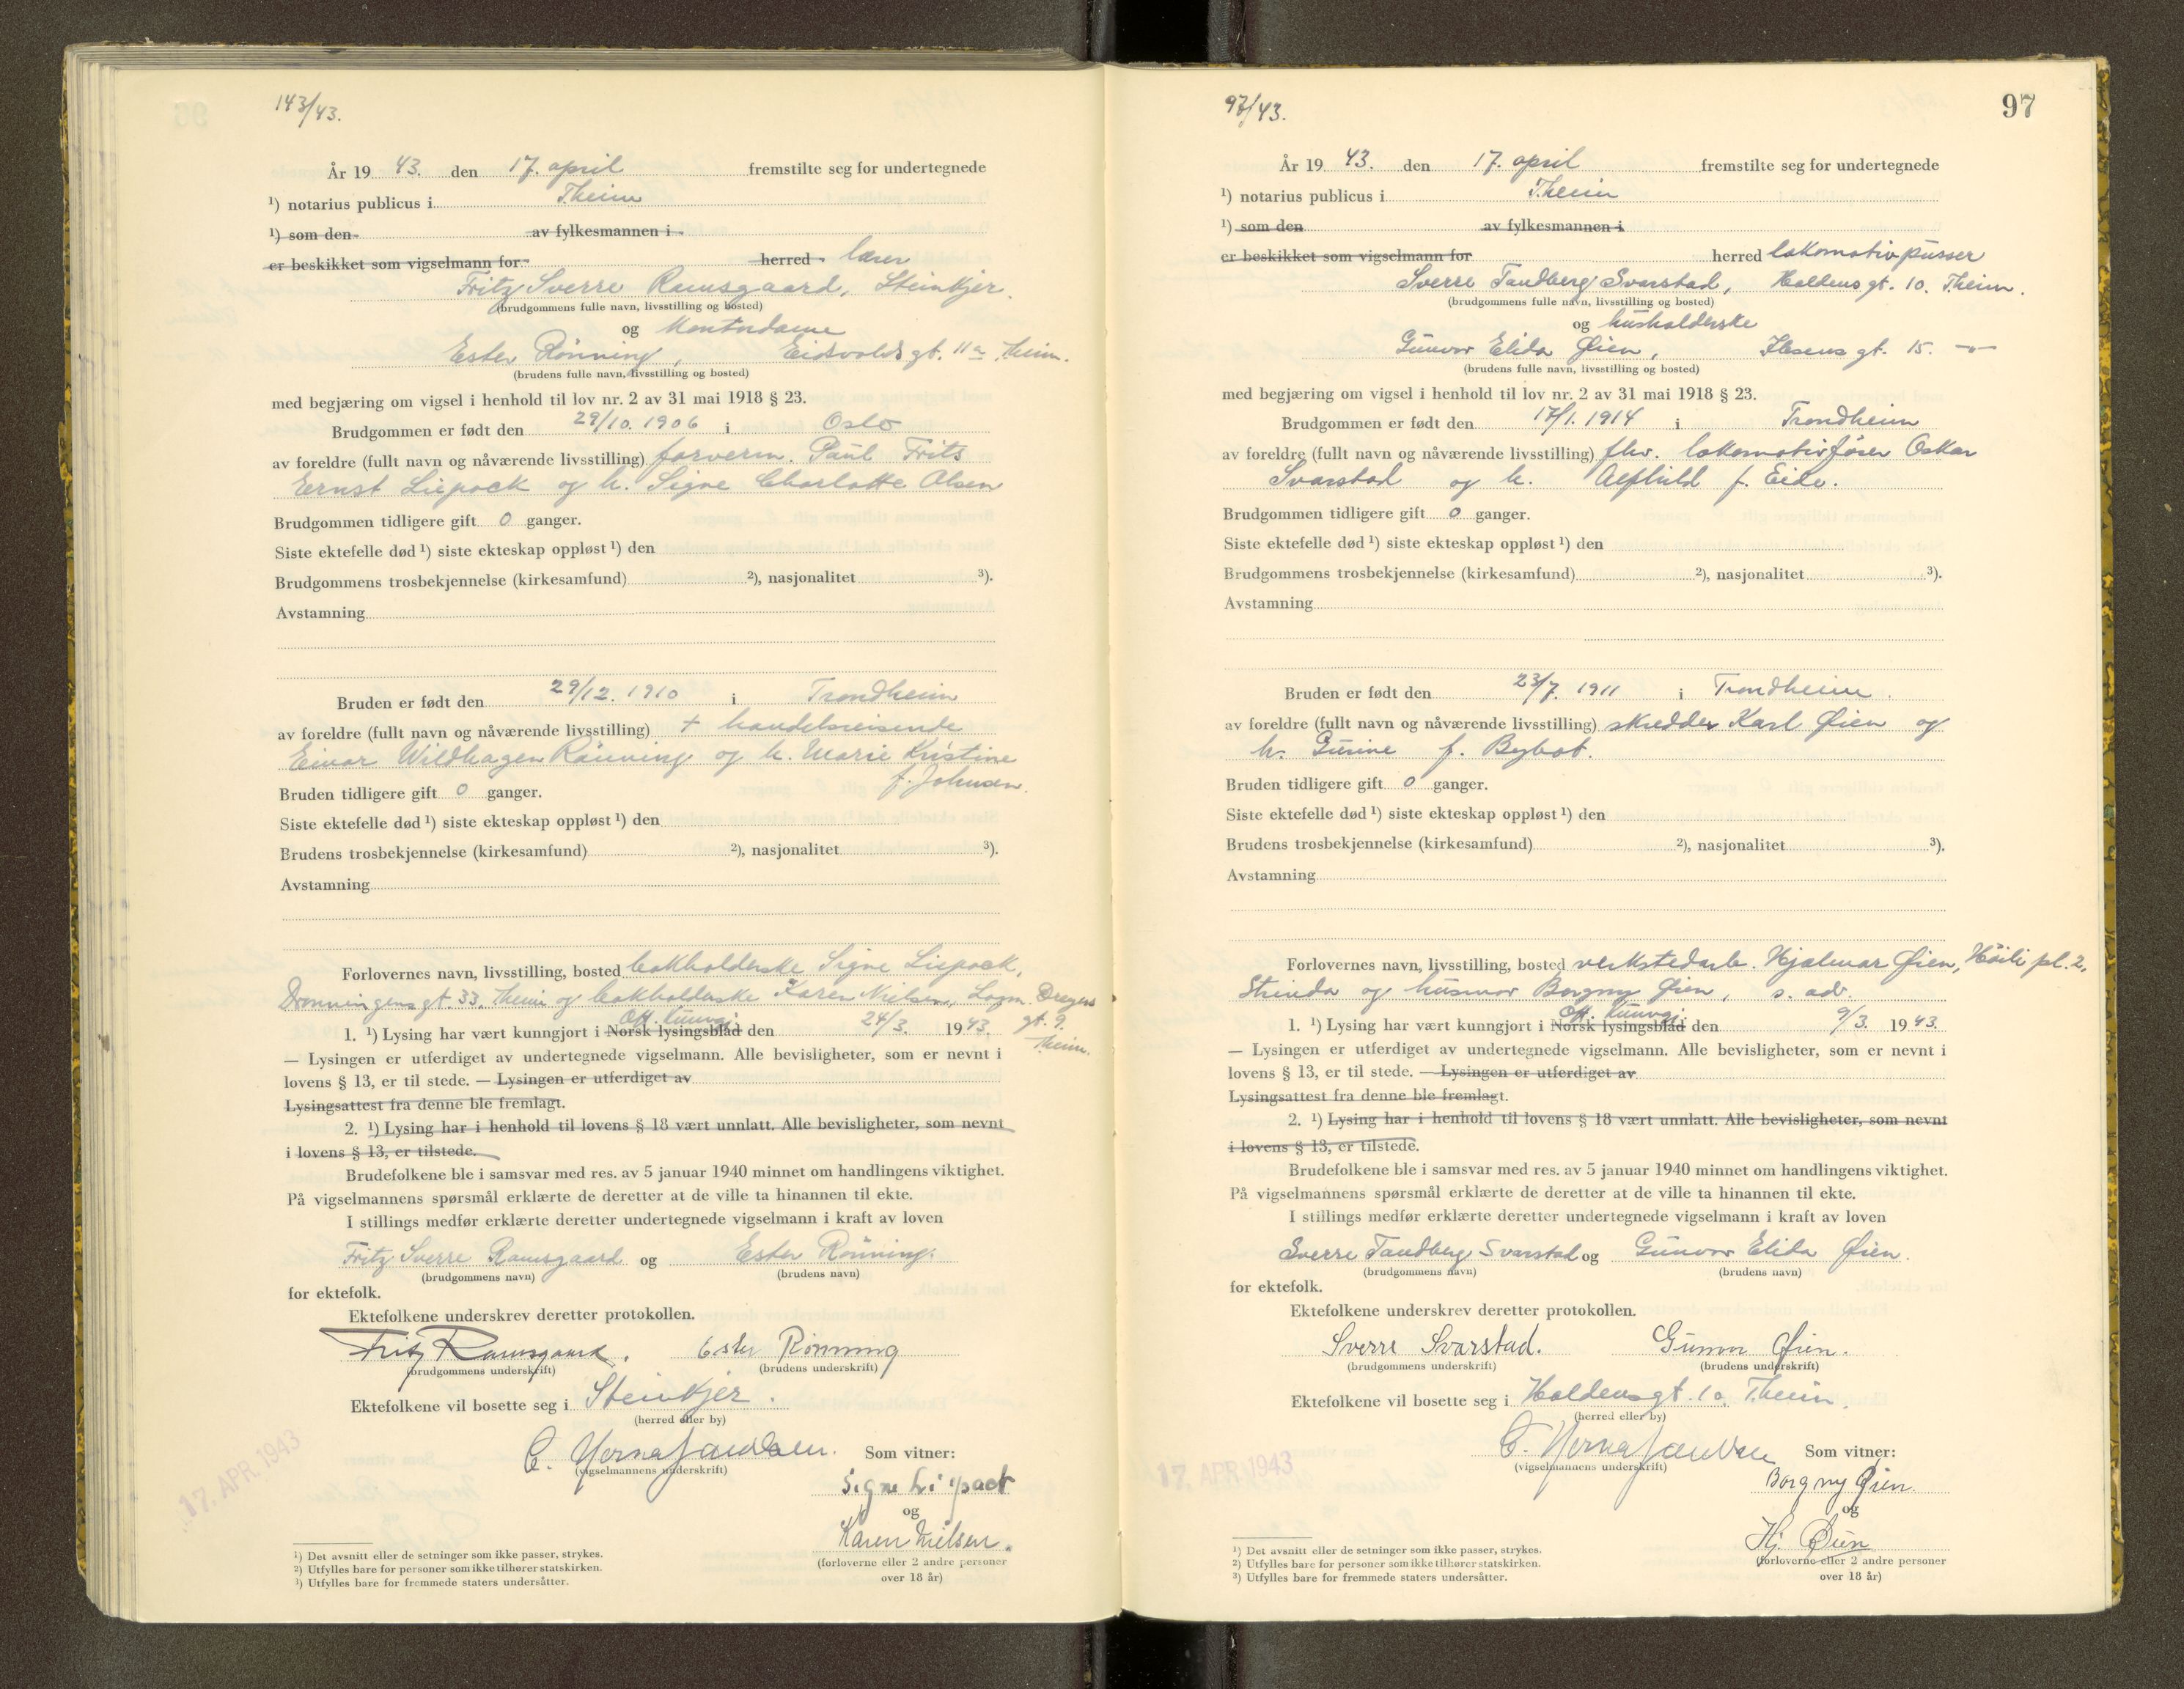 143/43.
År 19 43. den 17. april fremstilte seg for undertegnede
¹) notarius publicus i Theim
¹) som den av fylkesmannen i
er beskikket som vigselmann for herred lærer
Fritz Sverre Ramsgaard, Steinkjer.
(brudgommens fulle navn, livsstilling og bosted)
og kontordame
Ester Rönning, Eidsvolds gt. 11a Theim.
(brudens fulle navn, livsstilling og bosted)
med begjæring om vigsel i henhold til lov nr. 2 av 31 mai 1918 § 23.
Brudgommen er født den 29/10. 1906 i Oslo
av foreldre (fullt navn og nåværende livsstilling) farverm. Paul Frits
Ernst Liepack og h. Signe Charlotte Olsen
Brudgommen tidligere gift 0 ganger.
Siste ektefelle død ¹) siste ekteskap oppløst ¹) den
Brudgommens trosbekjennelse (kirkesamfund) ²), nasjonalitet ³).
Avstamning
Bruden er født den 29/12. 1910 i Trondheim
av foreldre (fullt navn og nåværende livsstilling) + handelsreisende
Einar Wildhagen Rönning og h. Marie Kristine
f. Johnsen.
Bruden tidligere gift 0 ganger.
Siste ektefelle død ¹) siste ekteskap oppløst ¹) den
Brudens trosbekjennelse (kirkesamfund) ²), nasjonalitet ³).
Avstamning
Forlovernes navn, livsstilling, bosted bokholderske Signe Liepack,
Dronningens gt. 33, Theim og bokholderske Karen Nielsen, Lozm. Dreyers
gt. 9.
Theim.
Off. kunngj.
1. ¹) Lysing har vært kunngjort i Norsk lysingsblad den 24/3. 1943.
— Lysingen er utferdiget av undertegnede vigselmann. Alle bevisligheter, som er nevnt i
lovens § 13, er til stede. — Lysingen er utferdiget av
Lysingsattest fra denne ble fremlagt.
2. ¹) Lysing har i henhold til lovens § 18 vært unnlatt. Alle bevisligheter, som nevnt
i lovens § 13, er tilstede.
Brudefolkene ble i samsvar med res. av 5 januar 1940 minnet om handlingens viktighet.
På vigselmannens spørsmål erklærte de deretter at de ville ta hinannen til ekte.
I stillings medfør erklærte deretter undertegnede vigselmann i kraft av loven
Fritz Sverre Ramsgaard og Ester Rönning.
(brudgommens navn) (brudens navn)
for ektefolk.
Ektefolkene underskrev deretter protokollen.
Fritz Ramsgaard. Ester Rönning
(brudgommens underskrift) (brudens underskrift)
Ektefolkene vil bosette seg i Steinkjer.
(herred eller by)
Som vitner:
(vigselmannens underskrift)
17. APR. 1943
Signe Liepack
og
Karen Nielsen.
(forloverne eller 2 andre personer
over 18 år)
¹) Det avsnitt eller de setninger som ikke passer, strykes.
²) Utfylles bare for personer som ikke tilhører statskirken.
³) Utfylles bare for fremmede staters undersåtter.
97/43.
97
År 19 43. den 17. april fremstilte seg for undertegnede
¹) notarius publicus i Theim
¹) som den av fylkesmannen i
er beskikket som vigselmann for herred lokomotivpusser
Sverre Tandberg Svarstad, Haldens gt. 10. Theim.
(brudgommens fulle navn, livsstilling og bosted)
og husholderske
Gunvor Elida Øien, Ilsens gt. 15. —"—
(brudens fulle navn, livsstilling og bosted)
med begjæring om vigsel i henhold til lov nr. 2 av 31 mai 1918 § 23.
Brudgommen er født den 17/1. 1914 i Trondheim
av foreldre (fullt navn og nåværende livsstilling) fhv. lokomotivfører Oskar
Svarstad og h. Alfhild f. Eide.
Brudgommen tidligere gift 0 ganger.
Siste ektefelle død ¹) siste ekteskap oppløst ¹) den
Brudgommens trosbekjennelse (kirkesamfund) ²), nasjonalitet ³).
Avstamning
Bruden er født den 23/7. 1911 i Trondheim.
av foreldre (fullt navn og nåværende livsstilling) skredder Karl Øien og
h. Gurine f. Bybot.
Bruden tidligere gift 0 ganger.
Siste ektefelle død ¹) siste ekteskap oppløst ¹) den
Brudens trosbekjennelse (kirkesamfund) ²), nasjonalitet ³).
Avstamning
Forlovernes navn, livsstilling, bosted verkstedarb. Hjalmar Øien, Höili pl. 2,
Strinda og husmor Borgny Øien, s. adr.
Off. kunngj.
1. ¹) Lysing har vært kunngjort i Norsk lysingsblad den 9/3. 1943.
— Lysingen er utferdiget av undertegnede vigselmann. Alle bevisligheter, som er nevnt i
lovens § 13, er til stede. — Lysingen er utferdiget av
Lysingsattest fra denne ble fremlagt.
2. ¹) Lysing har i henhold til lovens § 18 vært unnlatt. Alle bevisligheter, som nevnt
i lovens § 13, er tilstede.
Brudefolkene ble i samsvar med res. av 5 januar 1940 minnet om handlingens viktighet.
På vigselmannens spørsmål erklærte de deretter at de ville ta hinannen til ekte.
I stillings medfør erklærte deretter undertegnede vigselmann i kraft av loven
Sverre Tandberg Svarstad og Gunvor Elida Øien.
(brudgommens navn) (brudens navn)
for ektefolk.
Ektefolkene underskrev deretter protokollen.
Sverre Svarstad. Gunvor Øien.
(brudgommens underskrift) (brudens underskrift)
Ektefolkene vil bosette seg i Haldens gt. 10. Theim.
(herred eller by)
Som vitner:
(vigselmannens underskrift)
17. APR. 1943
Borgny Øien.
og
Hj. Øien
(forloverne eller 2 andre personer
over 18 år)
¹) Det avsnitt eller de setninger som ikke passer, strykes.
²) Utfylles bare for personer som ikke tilhører statskirken.
³) Utfylles bare for fremmede staters undersåtter.